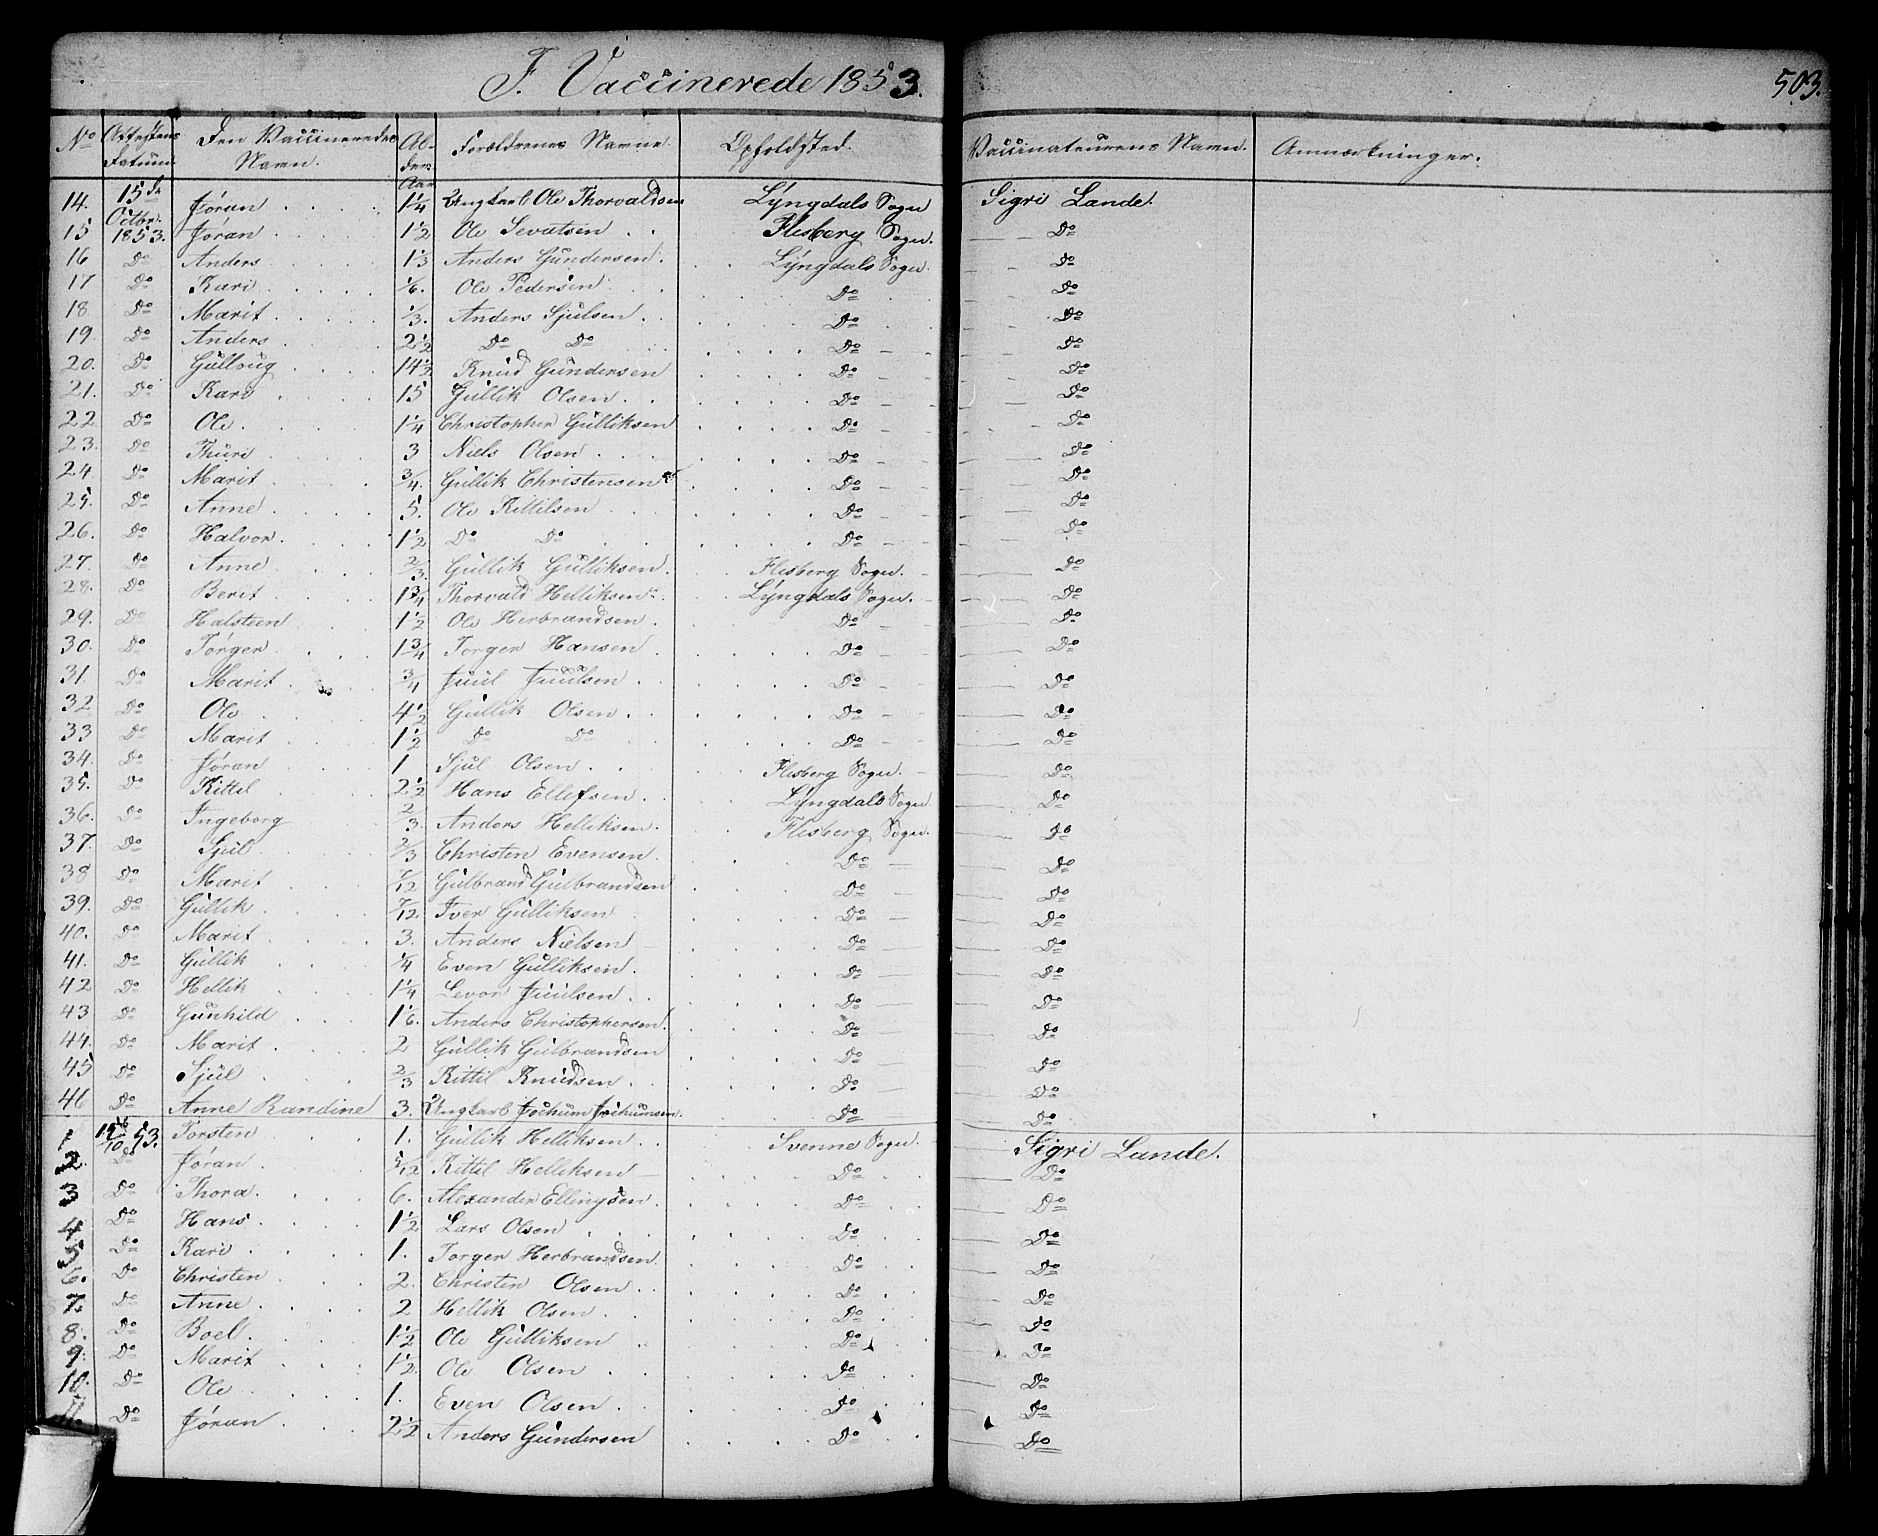 F. Vaccinerede 1853.
503.
No Attestens Datum. Den Vaccineredes Navn. Alder Aar Forældrenes Navne. Opholdsted. Vaccinateurens Navn. Anmærkninger.
14. 15de Octbr. 1853. Jøran 1 1/4 Ungkarl Ole Thorvaldsen Lyngdals Sogn Sigri Lande.
15 Jøran 1 1/2 Ole Sevatsen Flesberg Sogn. Do
16 Do Anders 1 1/3 Anders Gundersen. Lyngdals Sogn. Do
17 Do Kari 1/6. Ole Pedersen Do Do
18 Do Marit 1/3. Anders Sjulsen Do Do
19. Do Anders 2 1/2 Do Do Do Do
20. Do Gullaug 14 1/2 Knud Gundersen Do Do
21. Do Kari 15 Gullik Olsen Do Do
22 Do Ole 1 1/4 Christopher Gulliksen Do Do
23. Do Thuri 3 Niels Olsen Do Do
24 Do Marit 3/4. Gullik Christensen Do Do
25. Do Anne 5. Ole Kittilsen Do Do
26. Do Halvor 1 1/2 Do Do Do Do
27. Do Anne 2/3. Gullik Gulliksen. Flesberg Sogn. Do
28. Do Berit 1 3/4 Thorvald Helliksen Lyngdals Sogn. Do
29. Do Halsteen 1 1/2 Ole Herbrandsen. Do Do
30. Do Torger 1 3/4 Torger Hansen Do Do
31. Do Marit 3/4 Juul Juulsen Do Do
32 Do Ole 4 1/2 Gullik Olsen Do Do
33 Do Marit 1 1/2 Do Do Do Do
34. Do Jøran 1 Sjul Olsen Flesberg Sogn. Do
35. Do Kittil 2 1/2 Hans Ellefsen Lyngdals Sogn Do
36. Do Ingeborg 2/3. Anders Helliksen. Flesberg Sogn. Do
37. Do Sjul 2/3 Christen Evensen Do Do
38 Do Marit 7/12 Gulbrand Gulbrandsen Do Do
39. Do Gullik 7/12. Iver Gulliksen Do Do
40. Do Marit 3. Anders Nielsen Do Do
41. Do Gullik 1/4 Even Gulliksen. Do Do
42 Do Hellik 1 1/4 Levor Juulsen Do Do
43 Do Gunhild 1 1/6. Anders Christophersen. Do Do
44. Do Marit 2 Gullik Gulbrandsen Do Do
45 Do Sjul 2/3 Kittil Knudsen Do Do
46 Do Anne Randine 3. Ungkarl Jochum Jochumsen. Do Do
1. 15/10 53. Torsten 1. Gullik Helliksen Svenne Sogn. Sigri Lande.
2. Do Jøran 5/12 Kittil Helliksen Do Do
3 Do Thora. 6. Alexander Ellingsen Do Do
4 Do Hans 1 1/2 Lars Olsen Do Do
5 Do Kari 1. Torger Herbrandsen. Do Do
6. Do Christen 2. Christen Olsen Do Do
7. Do Anne 2 Hellik Olsen Do Do
8. Do Boel 1 1/2 Ole Gulliksen Do Do
9. Do Marit 1 1/2. Ole Olsen Do Do
10. Do Ole 1. Even Olsen Do Do
11. Do Jøran 2 1/2 Anders Gundersen Do Do